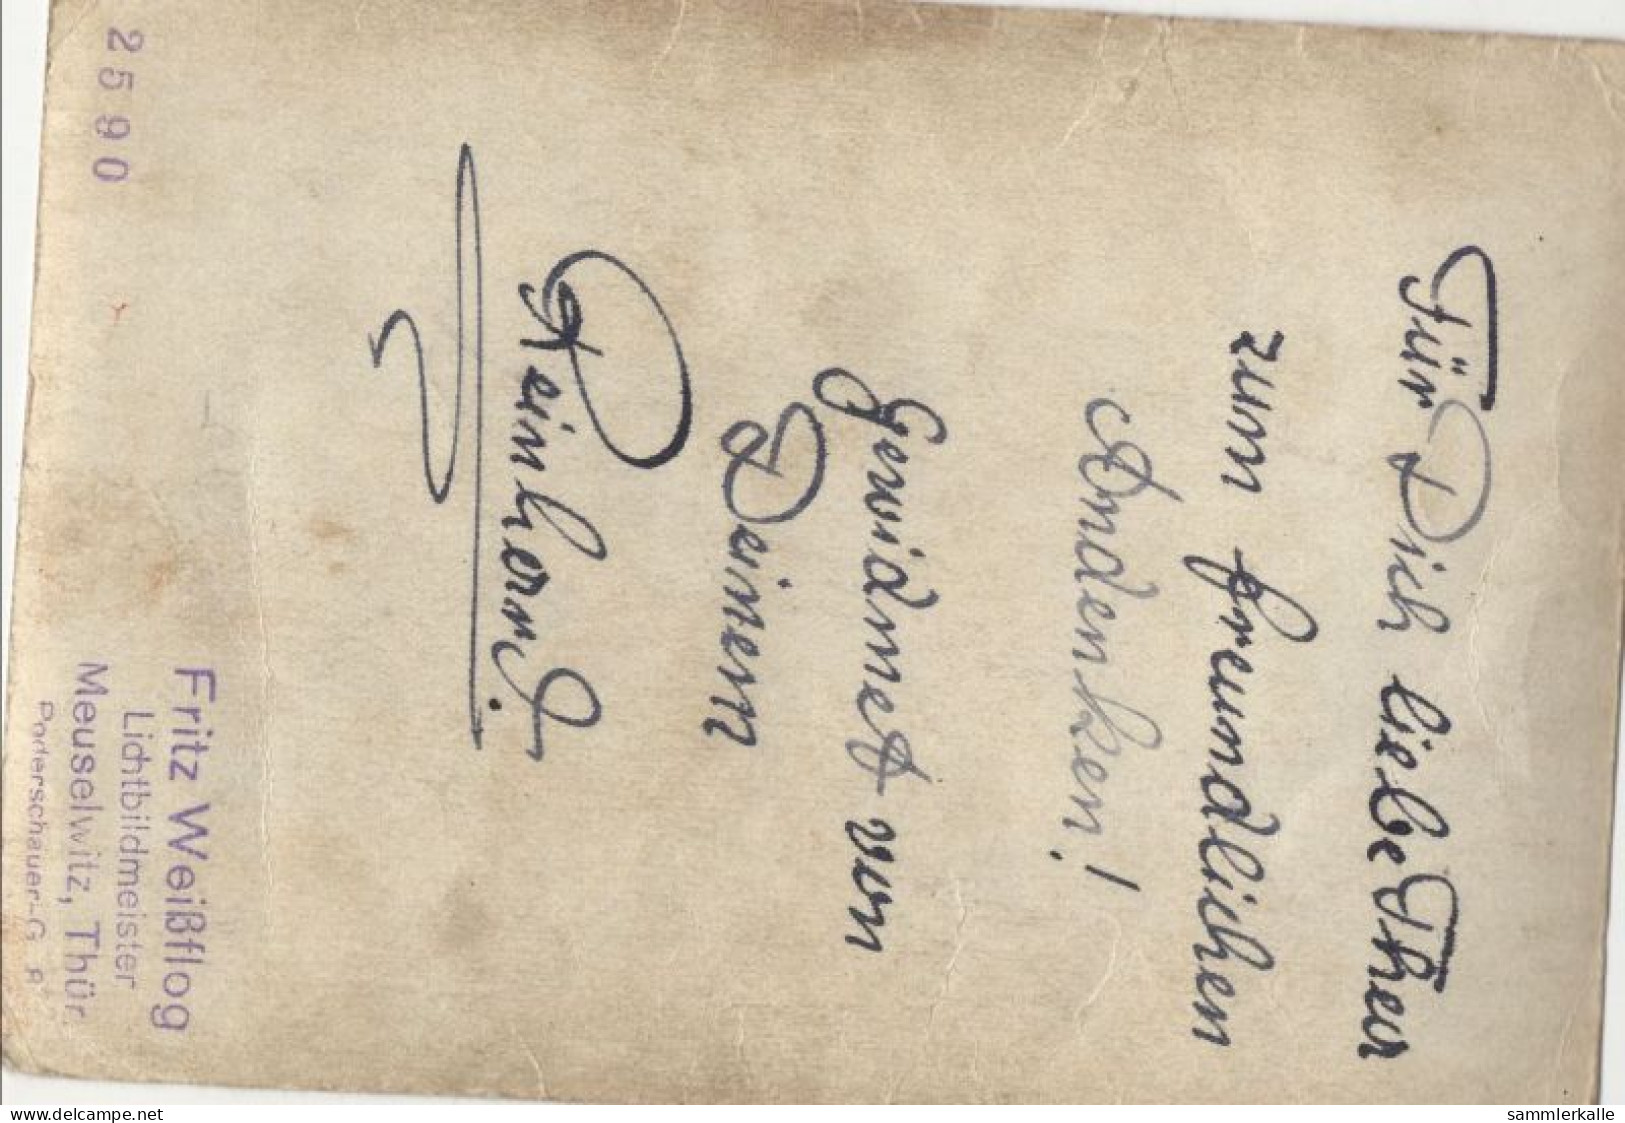 Für Dich liebe Thea
zum freundlichen
Andenken!
Gewidmet von
Deinem
Reinhard.
2590
Fritz Weißflog
Lichtbildmeister
Meuselwitz, Thür
www.delcampe.net
sammlerkalle